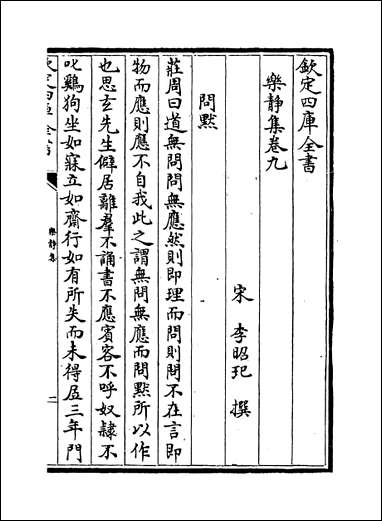 欽定四庫全書
樂靜集卷九
宋 李昭玘 撰
問默
莊周曰道無問問無應然則即理而問則問不在言即
物而應則應不自我此之謂無問無應而問默所以作
也思玄先生僻居離羣不誦書不應賓客不呼奴隸不
叱雞狗坐如寐立如齊行如有所失而未得居三年門
欽定四庫全書
樂靜集